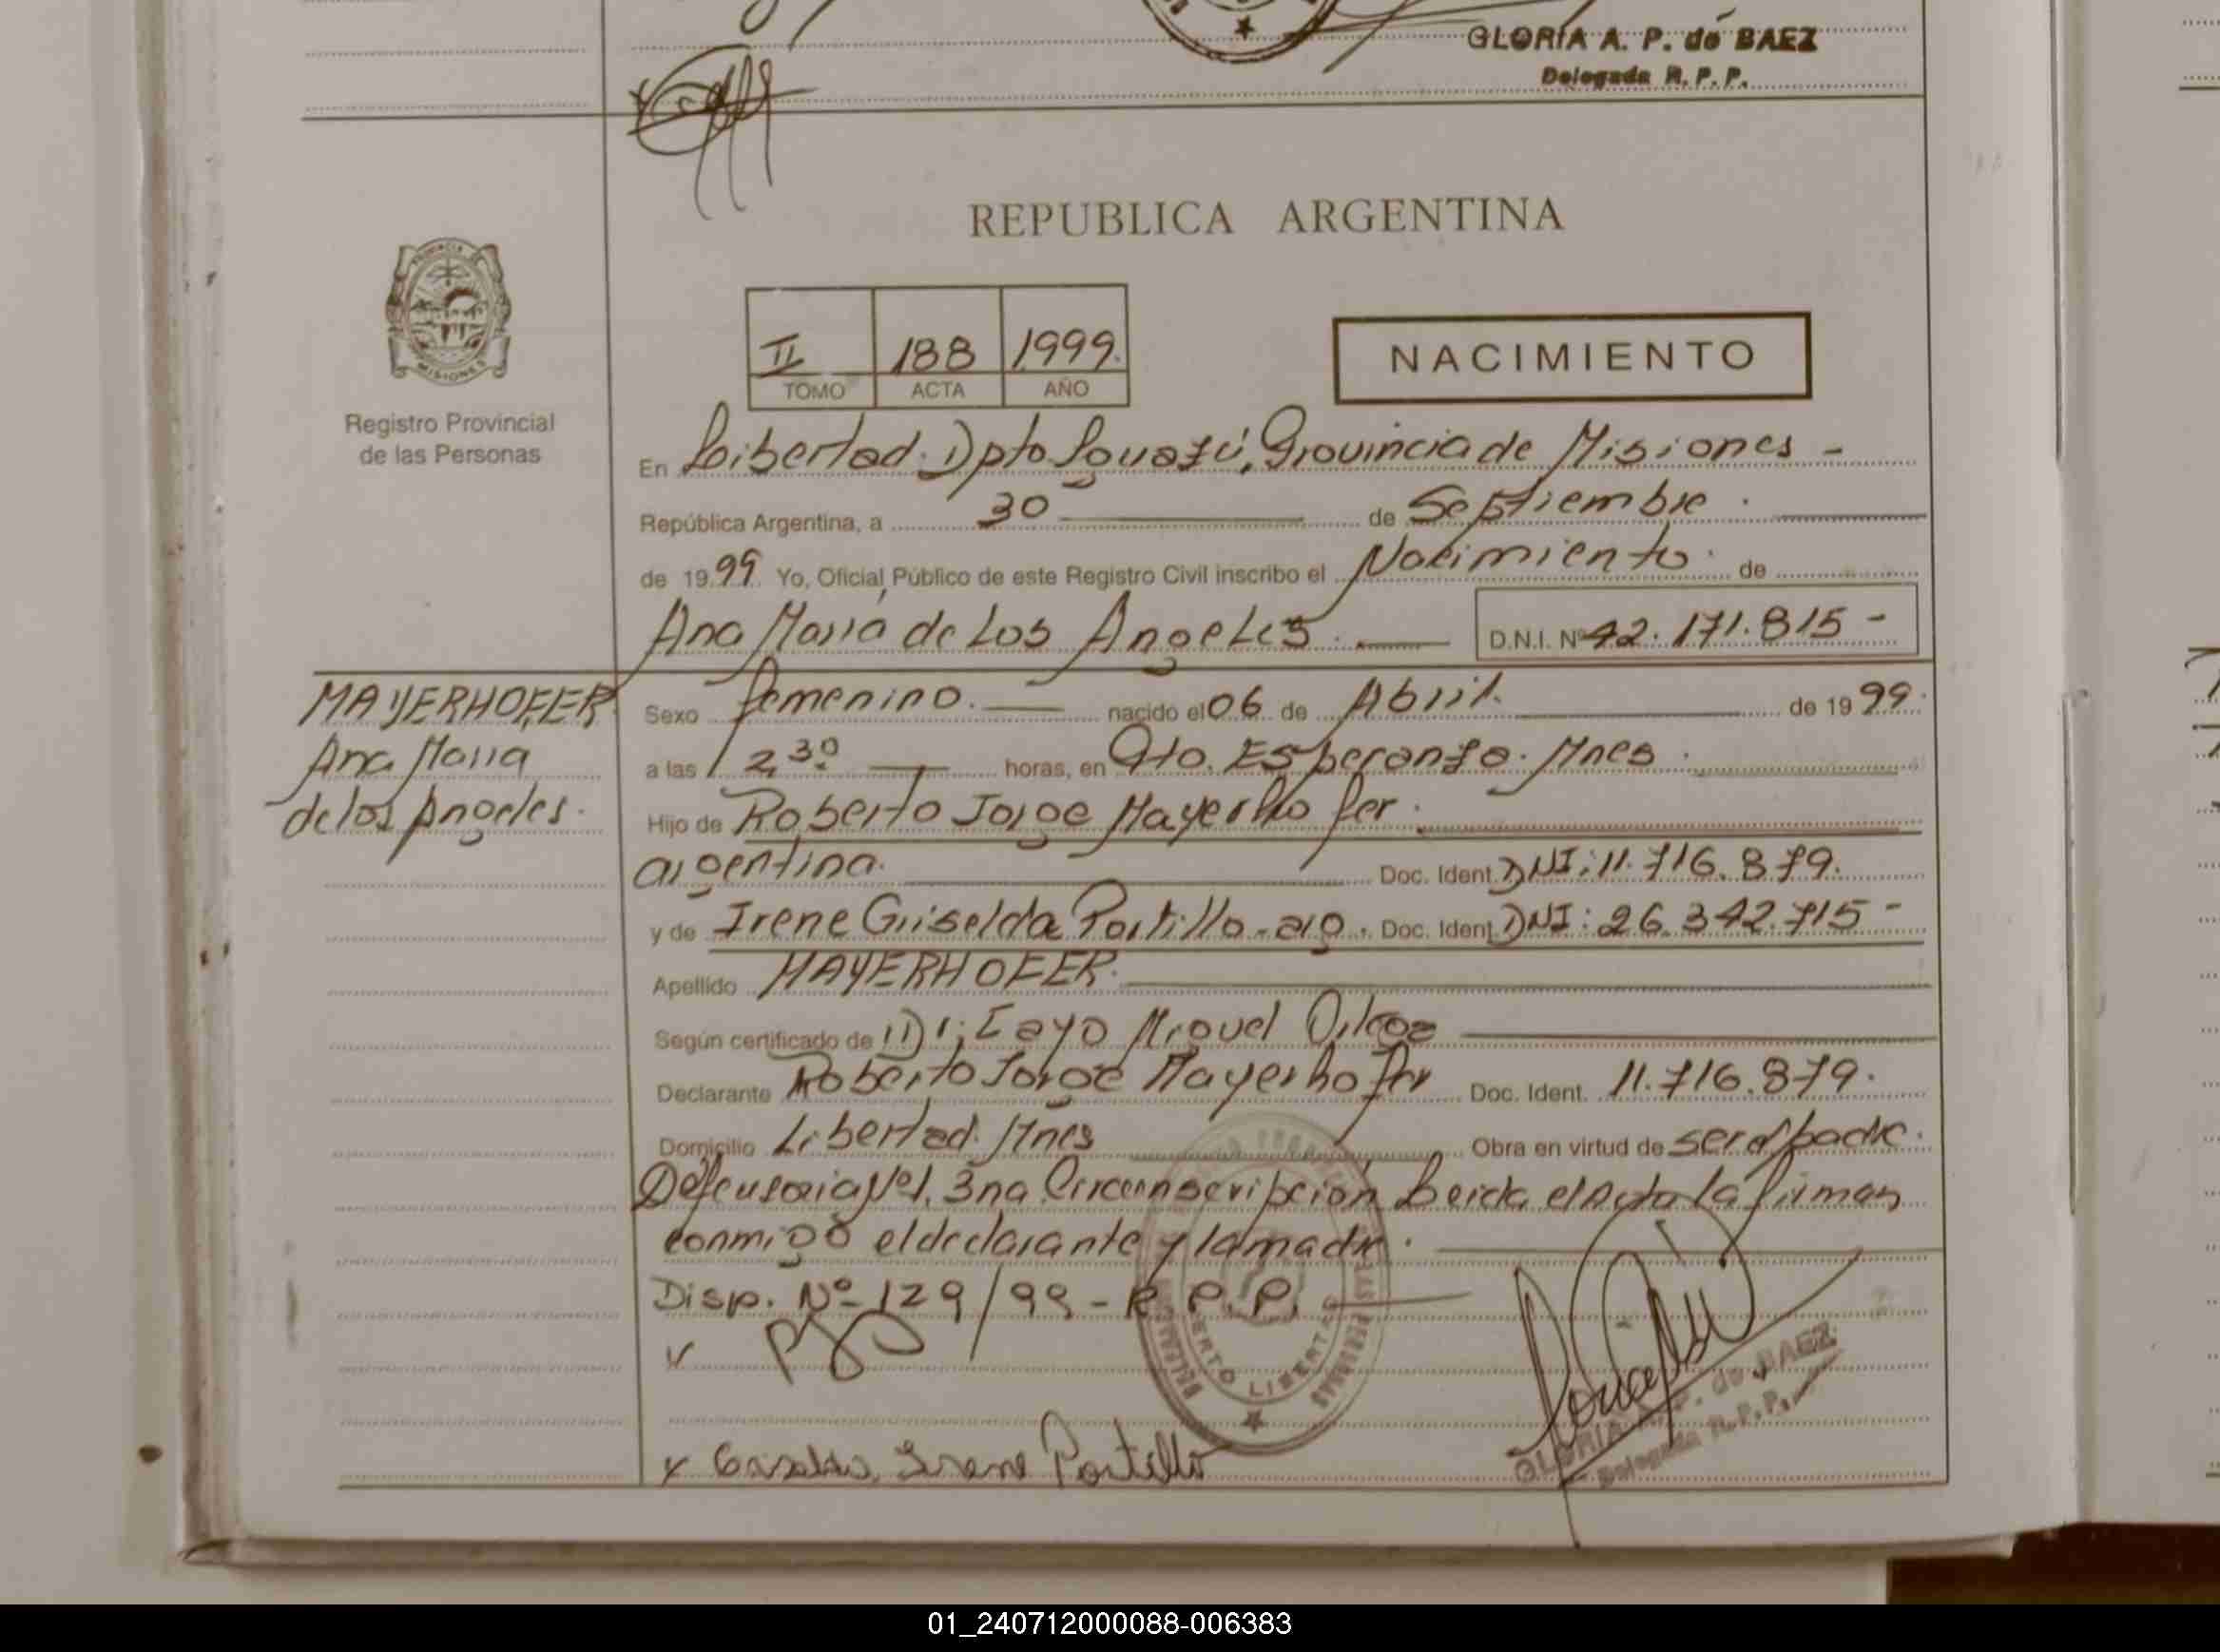 GLORIA A. P. de BAEZ
Delegada R. P. P.
REPUBLICA ARGENTINA
PROVINCIA
MISIONES
Registro Provincial
de las Personas
II 188 1999.
TOMO ACTA AÑO
NACIMIENTO
En Libertad. Dpto Iguazú, Provincia de Misiones -
República Argentina, a 30 de Septiembre.
de 1999. Yo, Oficial Público de este Registro Civil inscribo el Nacimiento. de
Ana María de Los Angeles. D.N.I. Nº 42.171.815-
MAYERHOFER
Ana María
de los Angeles.
Sexo femenino. nacido el 06 de Abril. de 1999.
a las 12,30 horas, en Pto. Esperanza. Mnes.
Hijo de Roberto Jorge Mayerhofer.
argentina. Doc. Ident. DNI: 11.716.879.
y de Irene Griselda Portillo - arg. Doc. Ident. DNI: 26.342.715-
Apellido MAYERHOFER.
Según certificado de Miguel
Declarante Roberto Jorge Mayerhofer Doc. Ident. 11.716.879.
Domicilio Libertad. Mnes Obra en virtud de ser el padre.
Defensoria Nº1, 3na Circunscripcion Leida el Acta la firman
conmigo el declarante y la madre.
Disp. Nº 129/99 - R. P. P.
x
x Griselda Irene Portillo
PUERTO LIBERTAD
GLORIA A. P. de BAEZ
Delegada R. P. P.
01_240712000088-006383